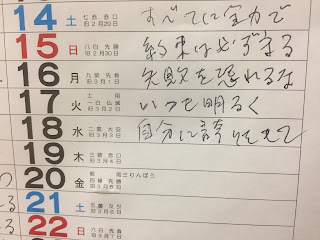 14 土 七赤 赤口 旧2月29日 すべてに全力で
15 日 八白 先勝 旧2月30日 約束は必ず守る
16 月 九紫 先負 旧3月1日 失敗を恐れるな
17 火 土用 一白 仏滅 旧3月2日 いつも明るく
18 水 二黒 大安 旧3月3日 自分に誇りをもて
19 木 三碧 赤口 旧3月4日
20 金 三りんぼう 四緑 先勝 旧3月5日
21 土 五黄 友引 旧3月6日
22 日 六白 先負 旧3月7日